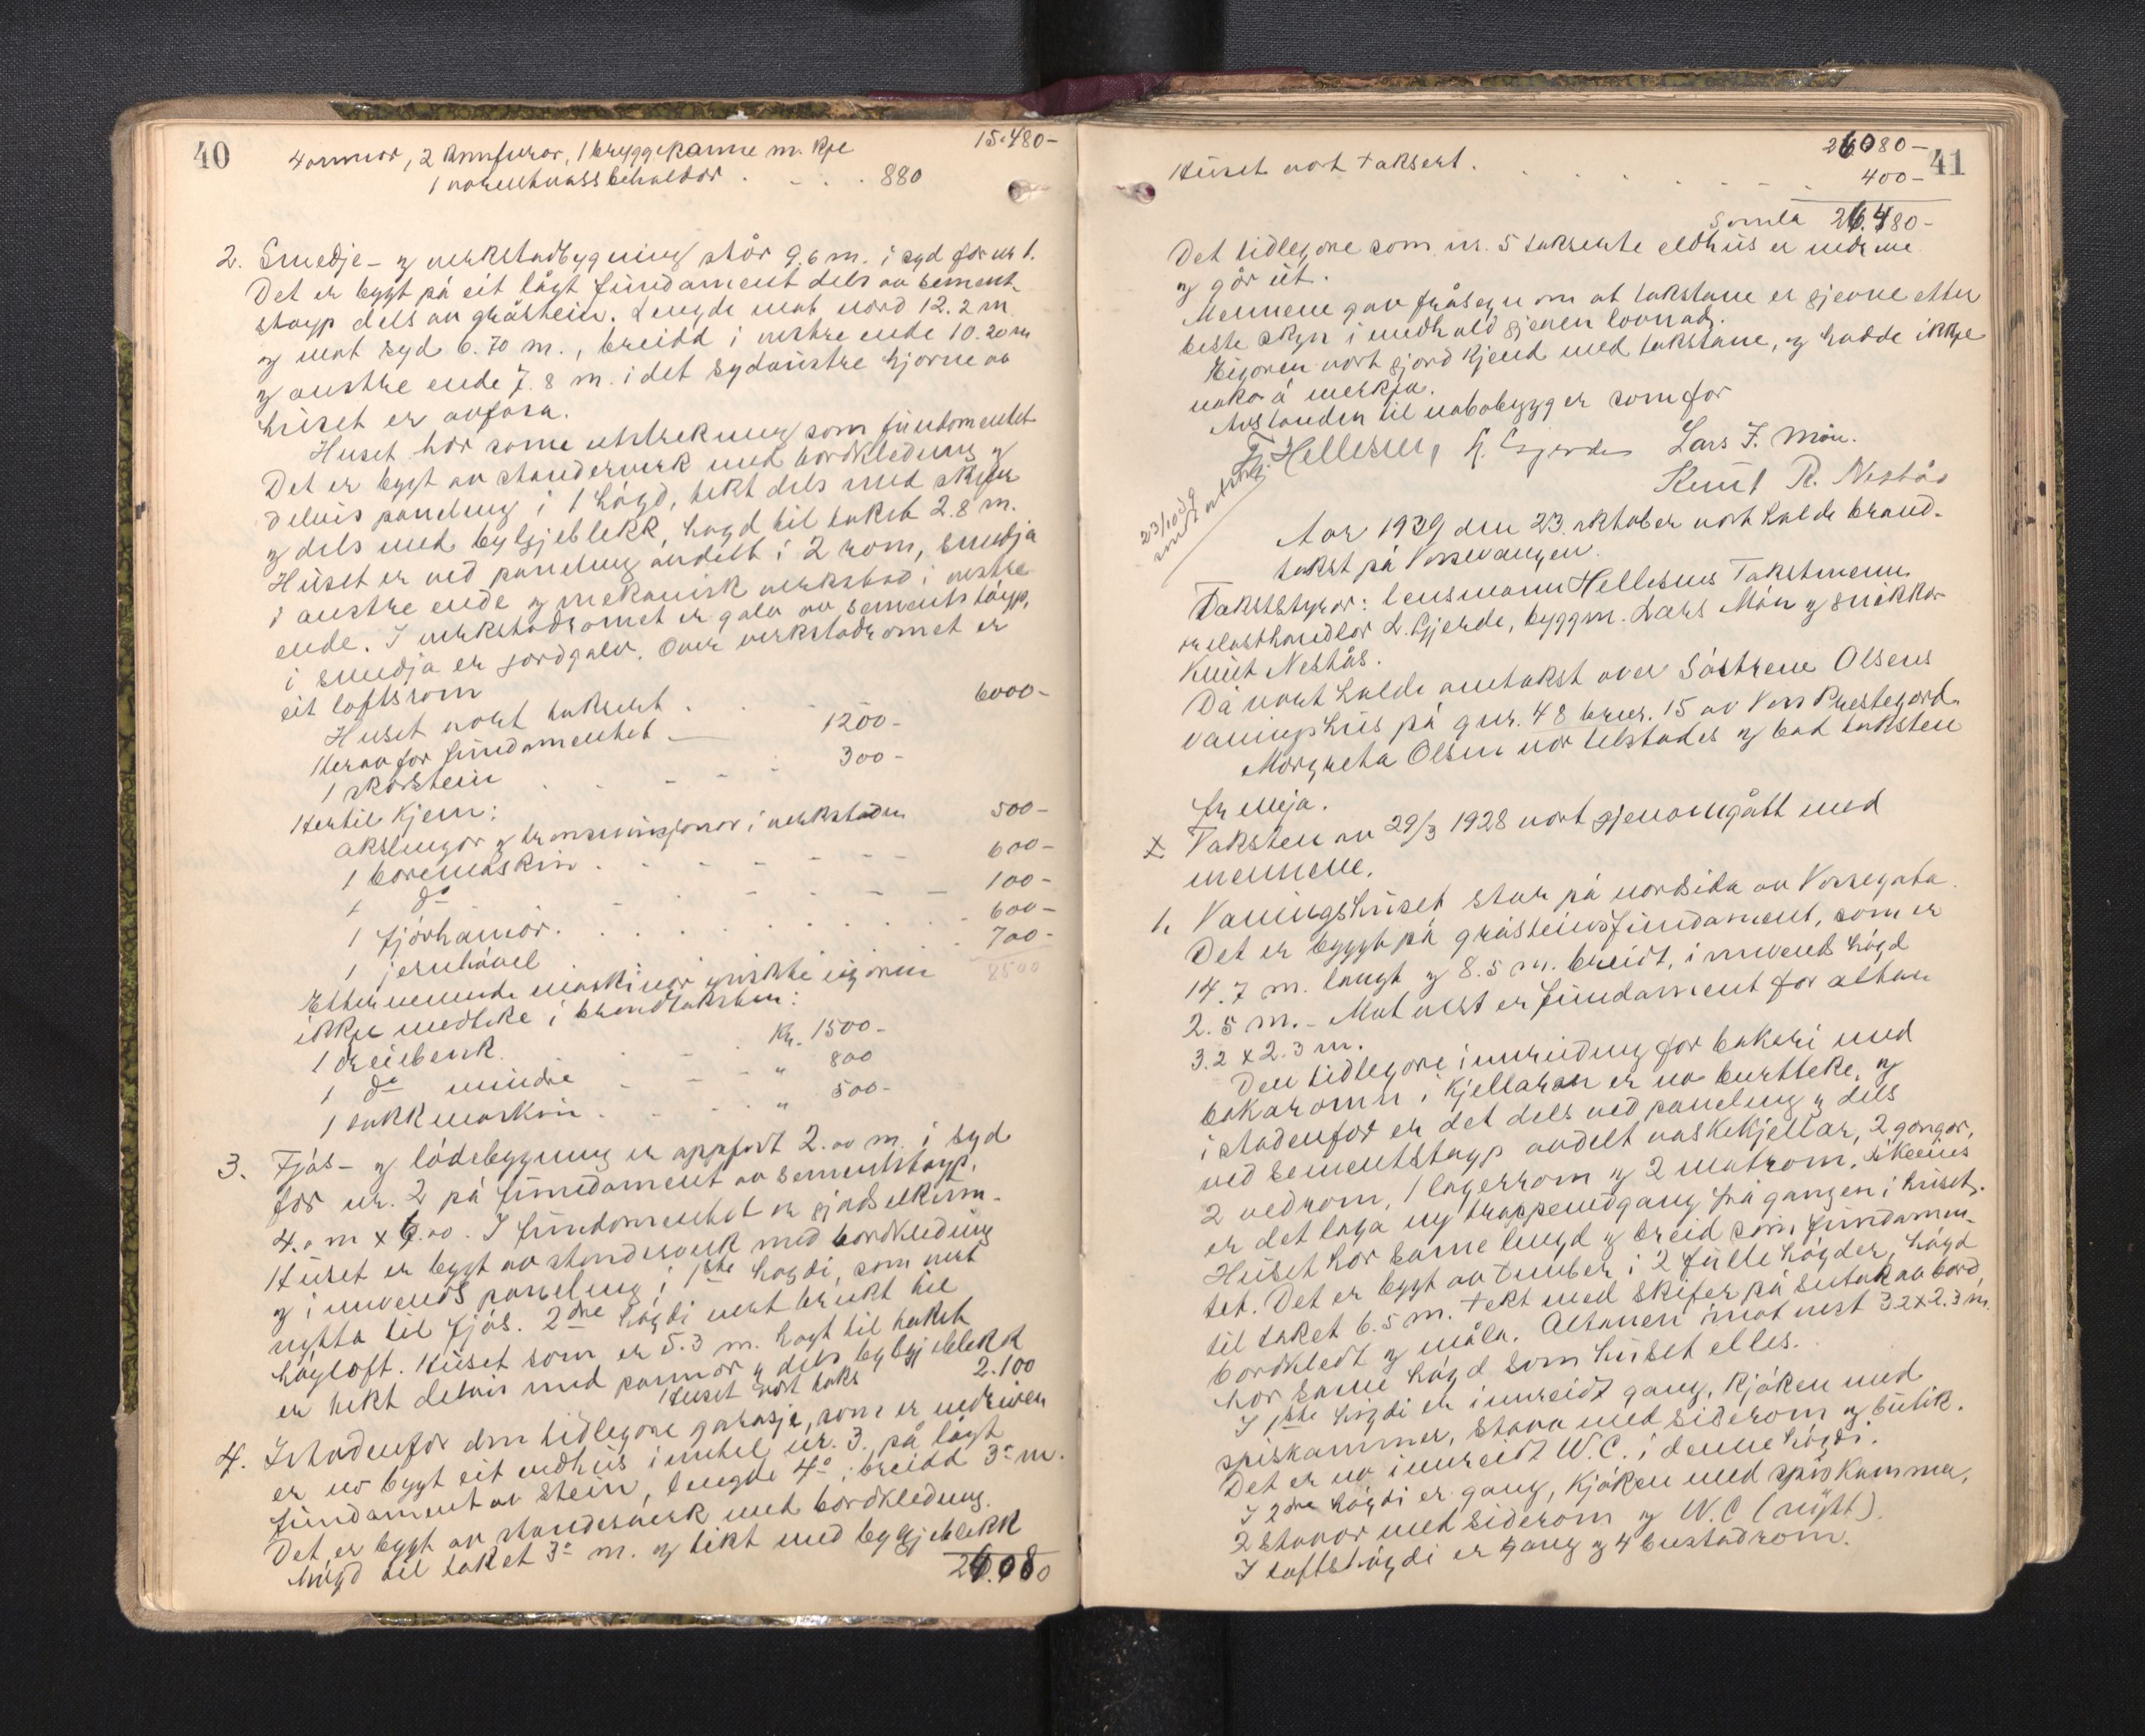 40
15.480-
4 omnar, 2 kamfurar, 1 bryggepanne m. kpe
1 varmtvassbehaldar . . . . 880
2. Smedje- og verkstadbygning står 9.6 m. i syd for nr 1.
Det er bygt på eit lågt fundament dels av sement-
støyp dels av gråstein. Lengde mot nord 12.2 m
og mot syd 6.70 m., breidd i vestre ende 10.20 m
og austre ende 7.8 m. i det sydaustre hjørne av
huset er avfasa.
Huset har same utstrekning som fundamentet
Det er bygt av standerverk med bordkledning og
delvis paneling i 1 høgd, tekt dels med skifer
og dels med bylgjeblekk, høgd til taket 2.8 m.
Huset er ved paneling avdelt i 2 rom, smedja
i austre ende og mekanisk verkstad i vestre
ende. I verkstadromet er golv av sementstøyp,
i smedja er jordgolv. Over verkstadromet er
eit loftsrom
Huset vort taksert . . 6000-
Herav for fundamentet — 1200-
1 skorstein . . . . 300-
Hertil kjem:
akslingar og transmisjonar i verkstaden 500-
1 boremaskin . . . . . . 600-
1 do . . . . . 100-
1 fjørhamar . . . . . . 600-
1 jernhøvel . . . . . . 700-
8500
Etternemnde maskinar ynskte eigaren
ikkje medteke i brandtaksten:
1 dreiebenk . . . . Kr. 1500-
1 do mindre . . . " 800
1 lokkmaskin . . . " 500-
3. Fjøs- og lødebygning er oppført 2.00 m. i syd
for nr. 2 på fundament av sementstøyp,
4.0 m x 6.00. I fundamentet er gjødselkum-
Huset er bygt av standerverk med bordkledning
og innvends paneling i 1ste høgdi, som vert
nytta til fjøs. 2dre høgdi vert brukt til
høyloft. Huset som er 5.3 m. høgt til taket
er tekt delvis med pannor og dels bylgjeblekk
Huset vort taks 2.100
4. Istadenfor den tidlegare garasje, som er nedriven
er no bygt eit vedhus inntil nr. 3, på lågt
fundament av stein, lengde 4.0, breidd 3.0 m.
Det er bygt av standerverk med bordkledning.
høgd til taket 3.0 m. og tekt med bylgjeblekk
26.080
41
26080-
Huset vort taksert . . . . . . . 400-
Samla 26.480-
Det tidlegare som nr. 5 takserte eldhus er nedreve
og går ut.
Mennene gav fråsegn om at takstane er gjevne etter
beste skyn i medhald gjeven lovnad.
Eigaren vort gjord kjend med takstane, og hadde ikkje
noko å merkja.
Avstanden til nabobygg er som før
Hellesnes, L. Gjerde Lars J. Møn.
Knut R. Nestås
23/10 39
sendt utskr.
Aar 1939 den 23. oktober vart halde brand-
takst på Vossevangen.
Takststyrar: lensmann Hellesnes Takstmenn
 L. Gjerde, byggm. Lars Møn og snikkar
Knut Nestås.
Då vart halde omtakst over Søstrene Olsens
vaningshus på gnr. 48 bnr. 15 av Voss Prestegard.
Margreta Olsen var tilstades og bad taksten
fremja.
x Taksten av 29/3 1928 vort gjenomgått med
mennene.
1. Vaningshuset står på nordsida av Vossegata.
Det er bygt på gråsteinsfundament, som er
14.7 m. langt og 8.5 m. breidt, i innvends høgd
2.5 m. - Mot vest er fundament for altan
3.2 x 2.3 m.
Den tidlegare innreiding for bakeri med
bakaromn i kjellaren er no burtteke, og
istadenfor er det dels ved paneling og dels
ved sementstøyp avdelt vaskekjellar, 2 gongar,
2 vedrom, 1 lagerrom og 2 matrom.
er det laga ny trappenedgang frå gangen i huset.
Huset har same lengd og breid som fundamen-
tet. Det er bygt av tømber i 2 fulle høgder, høgd
til taket 6.5 m. tekt med skifer på sutak av bord,
bordkledt og måla. Altanen imot vest 3.2 x 2.3 m.
har same høgd som huset elles.
I 1ste høgdi er innreidt gang, kjøken med
spiskammer, stova med siderom og butik.
Det er no innreidt W.C. i denne høgdi.
I 2dre høgdi er gang, kjøken med spiskammer,
2 stovor med siderom og W.C (nytt).
I loftshøgdi er gang og 4 bustadrom.